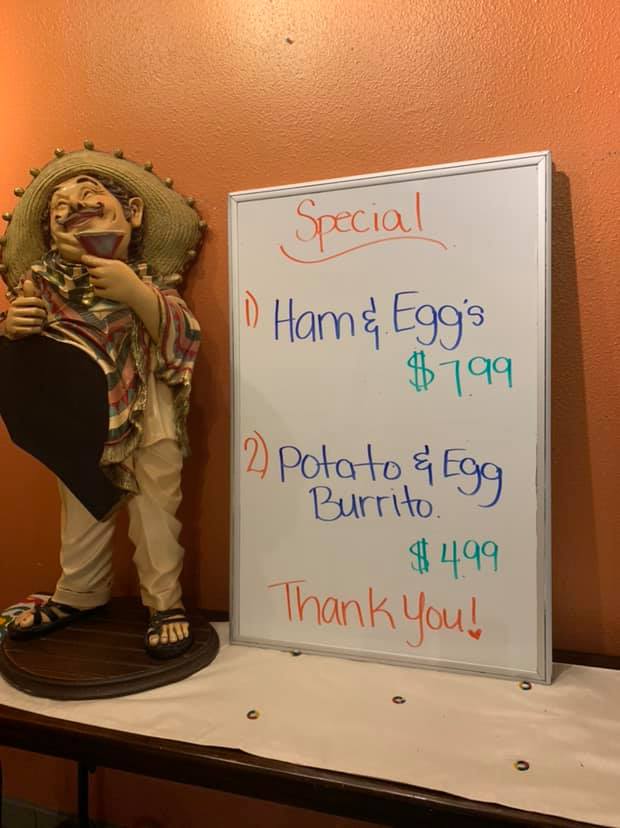 Special
1) Ham & Egg's
$7.99
2) Potato & Egg
Burrito.
$4.99
Thank You!